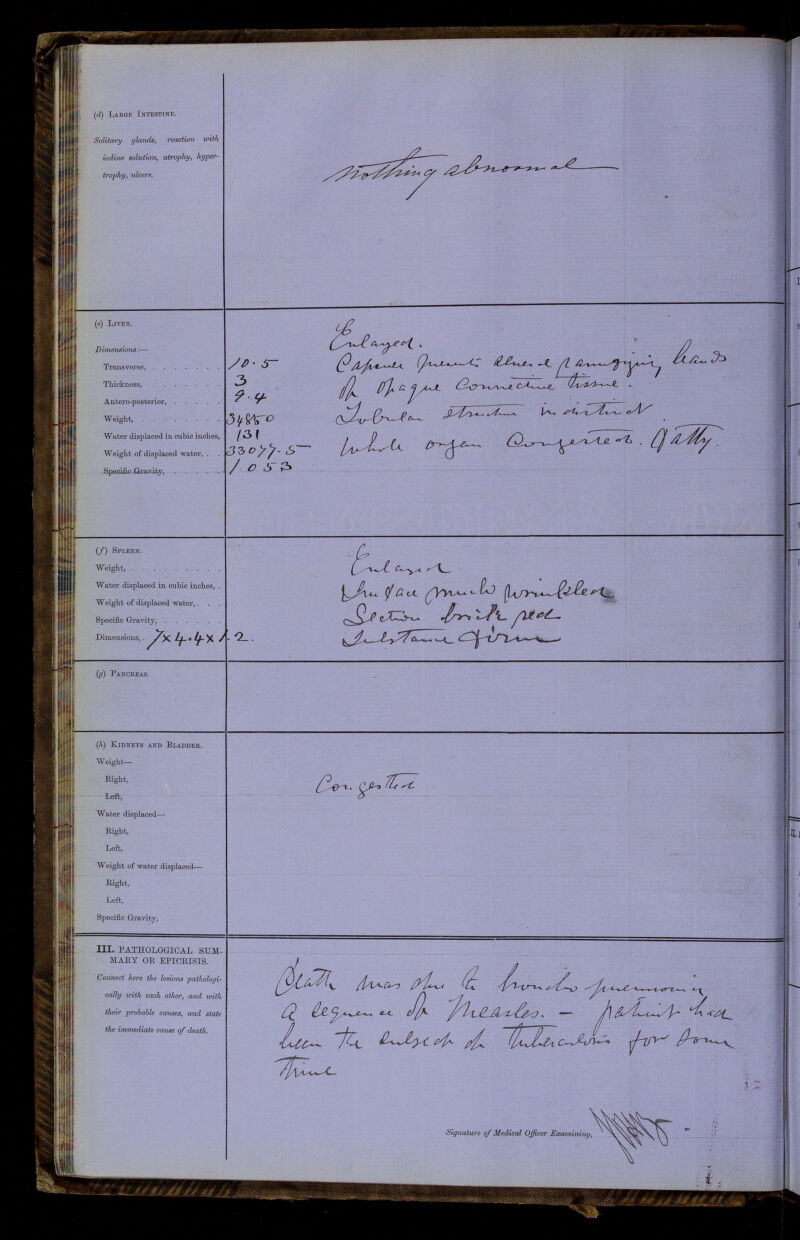 (d) LARGE INTESTINE.
Solitary glands, reaction with
iodine solution, atrophy, hyper-
trophy, ulcers.
nothing abnormal
(e) LIVER.
Dimensions:—
Transverse, 10.5
Thickness, 3
Antero-posterior, 9.4
Weight, 34850
Water displaced in cubic inches, 131
Weight of displaced water, 33077.5
Specific Gravity, 1.053
Enlarged.
Capsule presents several ramifying bands
of opaque connective tissue.
Lobular structure indistinct
Whole organ Congested. Fatty.
(f) SPLEEN.
Weight,
Water displaced in cubic inches,
Weight of displaced water,
Specific Gravity,
Dimensions, 7 x 4.4 x 1.2.
Enlarged
Surface much wrinkled
Section brick red
Substance firm
(g) PANCREAS.
(h) KIDNEYS AND BLADDER.
Weight—
Right,
Left,
Water displaced—
Right,
Left,
Weight of water displaced—
Right,
Left,
Specific Gravity,
Congested
III. PATHOLOGICAL SUM-
MARY OR EPICRISIS.
Connect here the lesions pathologi-
cally with each other, and with
their probable causes, and state
the immediate cause of death.
Death was due to broncho pneumonia
a sequence of Measles. — patient had
been the subject of tuberculosis for some
time
Signature of Medical Officer Examining,